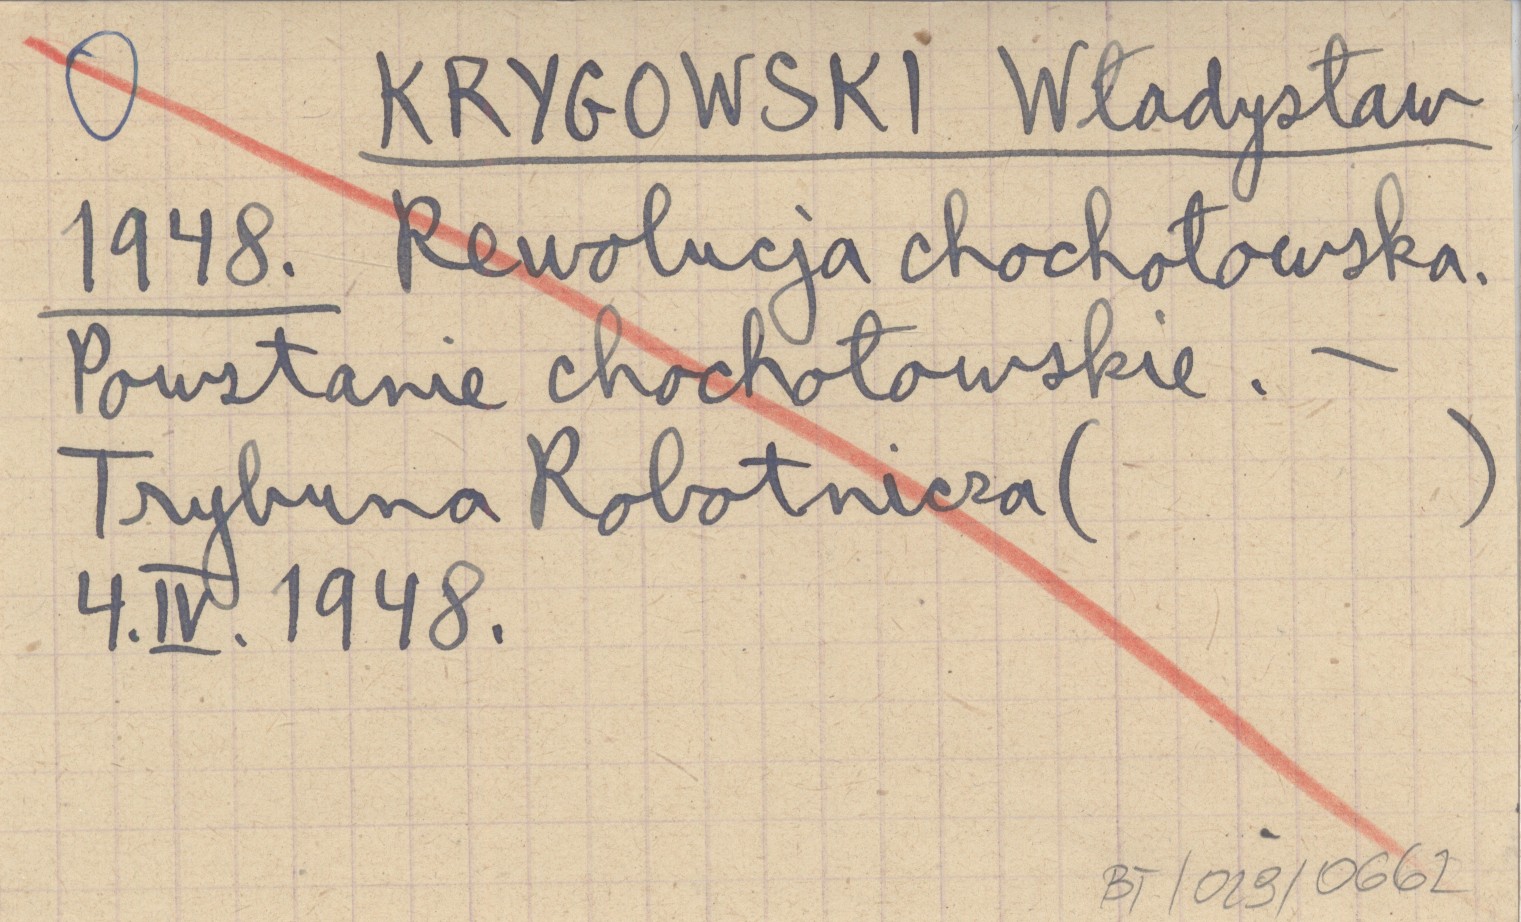 KRYGOWSKI Władysław
1948. Rewolucja chochołowska.
Powstanie chochołowskie. —
Trybuna Robotnicza ( )
4.IV.1948.
BT/029/0662